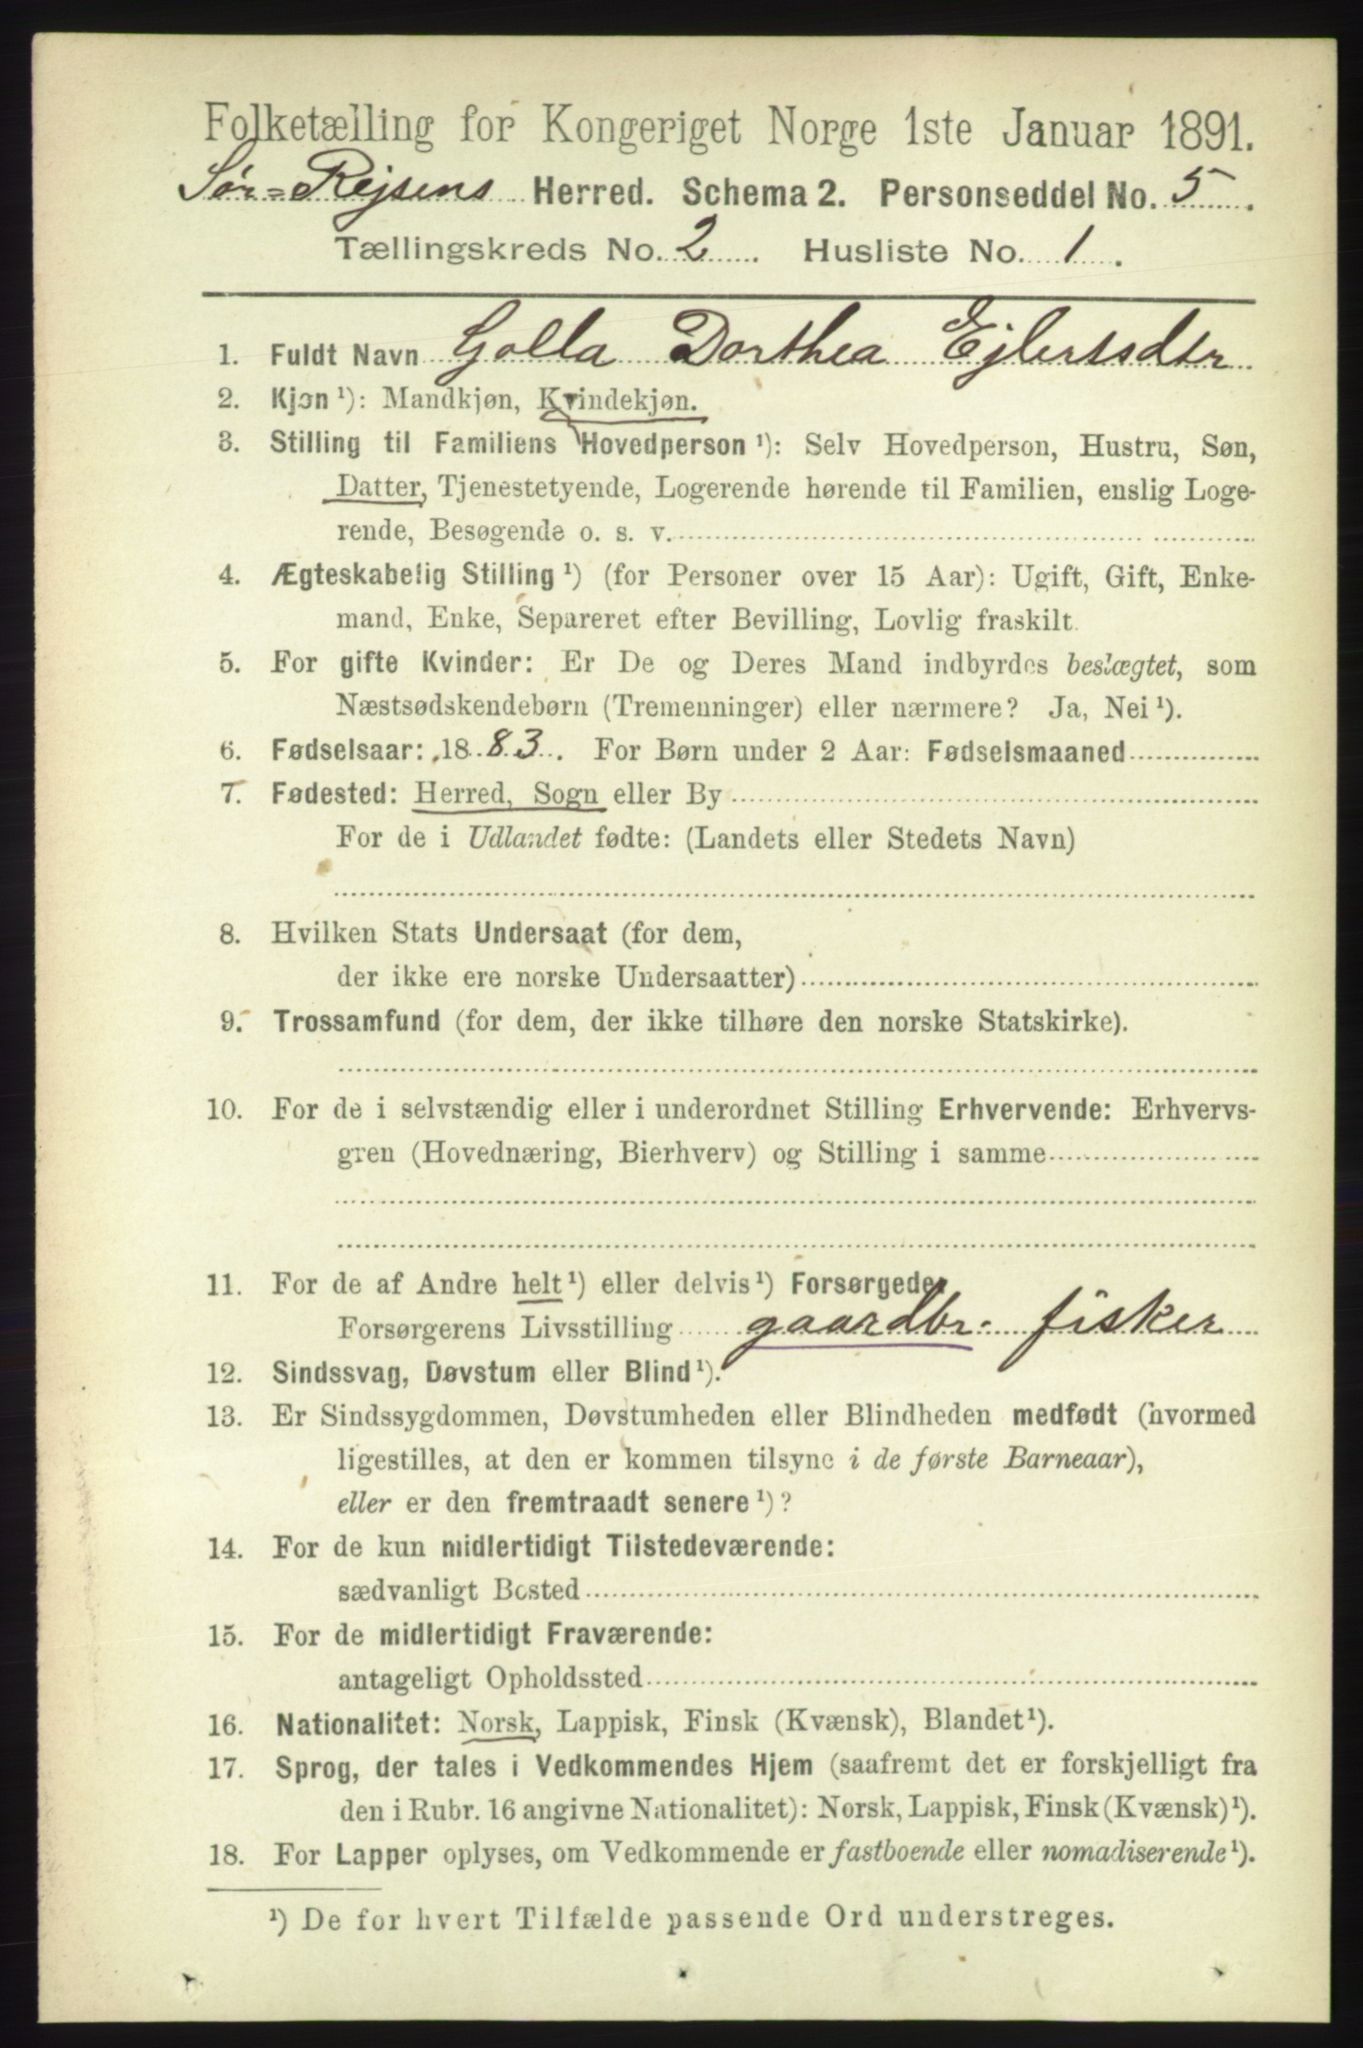 Folketælling for Kongeriget Norge 1ste Januar 1891.
Sør-Rejsens Herred. Schema 2. Personseddel No. 5.
Tællingskreds No. 2. Husliste No. 1.
1. Fuldt Navn Golla Dorthea Ejlertsdtr
2. Kjøn ¹): Mandkjøn, Kvindekjøn.
3. Stilling til Familiens Hovedperson ¹): Selv Hovedperson, Hustru, Søn,
Datter, Tjenestetyende, Logerende hørende til Familien, enslig Loge-
rende, Besøgende o. s. v.
4. Ægteskabelig Stilling ¹) (for Personer over 15 Aar): Ugift, Gift, Enke-
mand, Enke, Separeret efter Bevilling, Lovlig fraskilt.
5. For gifte Kvinder: Er De og Deres Mand indbyrdes beslægtet, som
Næstsødskendebørn (Tremenninger) eller nærmere? Ja, Nei ¹).
6. Fødselsaar: 1883. For Børn under 2 Aar: Fødselsmaaned
7. Fødested: Herred, Sogn eller By
For de i Udlandet fødte: (Landets eller Stedets Navn)
8. Hvilken Stats Undersaat (for dem,
der ikke ere norske Undersaatter)
9. Trossamfund (for dem, der ikke tilhøre den norske Statskirke).
10. For de i selvstændig eller i underordnet Stilling Erhvervende: Erhvervs-
gren (Hovednæring, Bierhverv) og Stilling i samme
11. For de af Andre helt ¹) eller delvis ¹) Forsørgede:
Forsørgerens Livsstilling gaardbr. fisker
12. Sindssvag, Døvstum eller Blind ¹).
13. Er Sindssygdommen, Døvstumheden eller Blindheden medfødt (hvormed
ligestilles, at den er kommen tilsyne i de første Barneaar),
eller er den fremtraadt senere ¹)?
14. For de kun midlertidigt Tilstedeværende:
sædvanligt Bosted
15. For de midlertidigt Fraværende:
antageligt Opholdssted
16. Nationalitet: Norsk, Lappisk, Finsk (Kvænsk), Blandet ¹).
17. Sprog, der tales i Vedkommendes Hjem (saafremt det er forskjelligt fra
den i Rubr. 16 angivne Nationalitet): Norsk, Lappisk, Finsk (Kvænsk) ¹).
18. For Lapper oplyses, om Vedkommende er fastboende eller nomadiserende ¹).
¹) De for hvert Tilfælde passende Ord understreges.